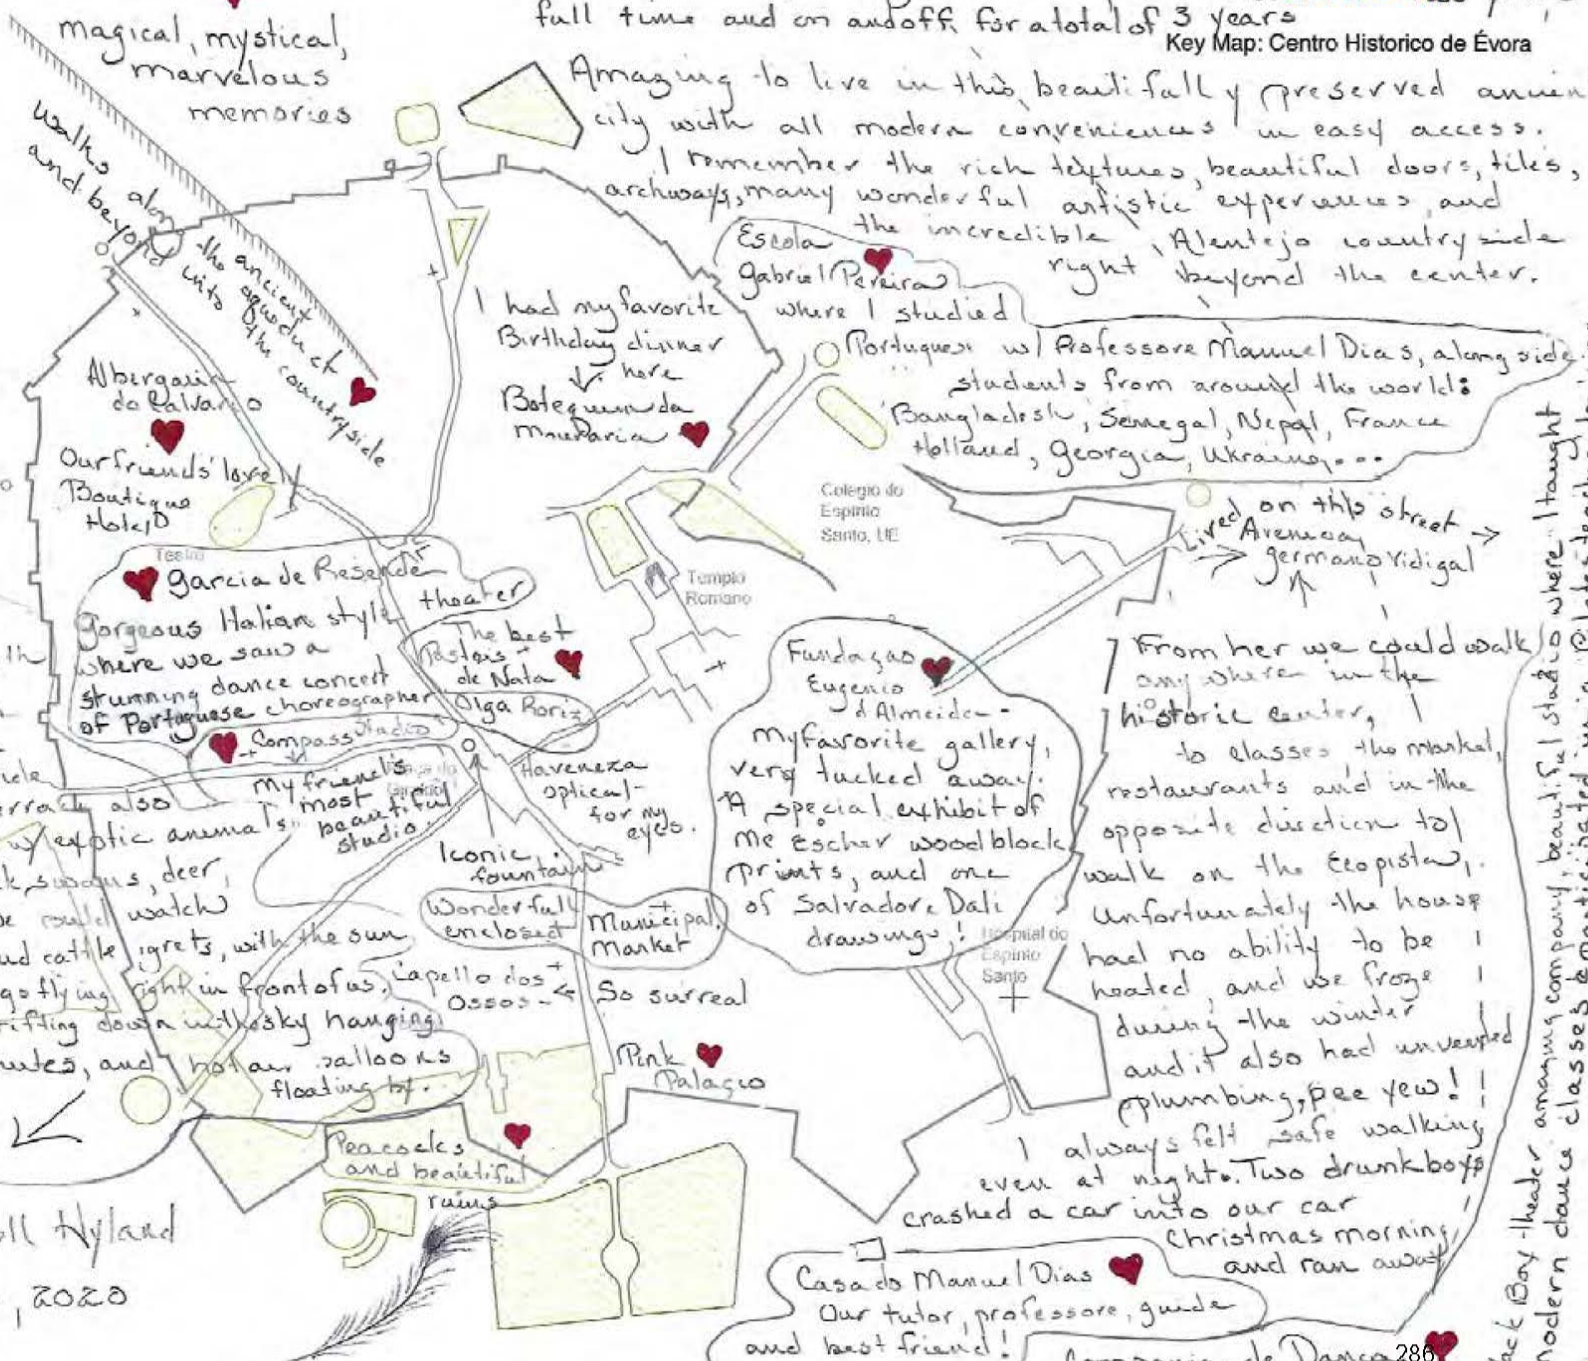 magical, mystical,
marvelous
memories
full time and on and off, for a total of 3 years
Key Map: Centro Historico de Évora
Amazing to live in this beautifully preserved
city with all modern conveniences in easy access.
I remember the rich textures, beautiful doors, tiles,
archways, many wonderful artistic experiences, and
the incredible Alentejo countryside
right beyond the center.
walks along the ancient aqueduct
and beyond into the countryside
Escola
Gabriel Pereira
where I studied
Portuguese w/ Professore Manuel Dias, alongside
students from around the world:
Bangladesh, Senegal, Nepal, France
Holland, Georgia, Ukraine, ...
I had my favorite
Birthday dinner
here
Botequim da
Mouraria
Albergaria
do Calvario
Our friends' love
Boutique
Hotel
Colegio do
Espirito
Santo, UE
Lived on this street →
Avenida
Germano Vidigal
Templo
Romano
Teatro
Garcia de Resende
theater
Gorgeous Italian style
where we saw a
stunning dance concert
of Portuguese choreographer
Olga Roriz
The best
Pasteis
de Nata
Compass Studio
My friend's
most
beautiful
studio.
Haveneza
optical
for my
eyes.
Iconic
fountain
Wonderful
enclosed
Municipal
Market
Fundaçao
Eugenio
d'Almeida -
My favorite gallery,
very tucked away.
A special exhibit of
MC Escher woodblock
prints, and one
of Salvadore Dali
drawings!
Hospital do
Espirito
Santo
From her we could walk
anywhere in the
historic center,
to classes, the market,
restaurants and in the
opposite direction to
walk on the Ecopista,
Unfortunately the house
had no ability to be
heated, and we froze
during the winter
and it also had unvented
plumbing, pee yew!
I always felt safe walking
even at night. Two drunk boys
crashed a car into our car
Christmas morning
and ran away
also
w/ exotic animals
swans, deer,
could watch
cattle igrets, with the sun
flying right in front of us,
down in the sky hanging
and hot air balloons
floating by.
Capello dos
Ossos -
So surreal
Pink
Palacio
Peacocks
and beautiful
ruins
Hyland
, 2020
Casa do Manuel Dias
Our tutor, professore, guide
and best friend!
de Dança
286
Box theater amazing company, beautiful studio where I taught
modern dance classes